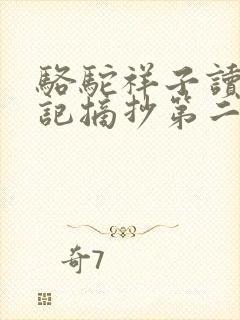 駱駝祥子讀
記摘抄第二
奇7